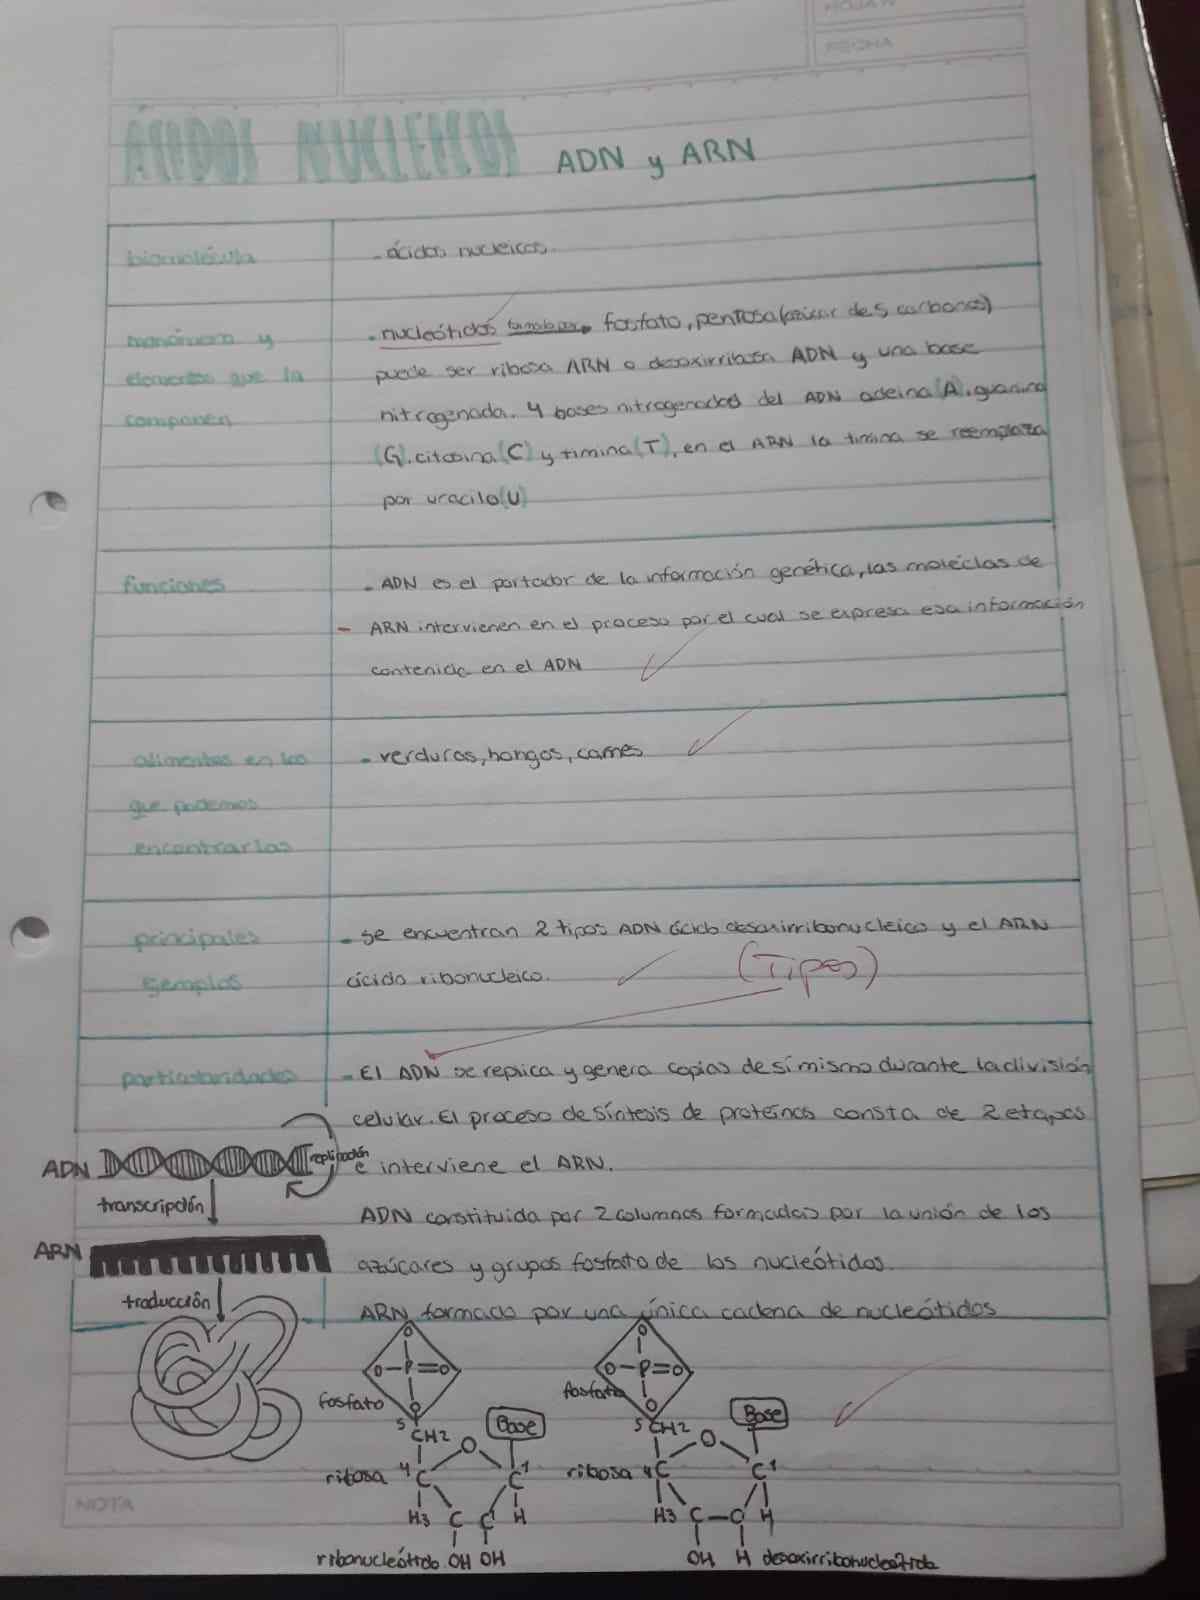 HOJA N°
FECHA
ÁCIDOS NUCLEICOS ADN y ARN
biomolécula
- ácidos nucleicos.
monómero y
elementos que la
componen
- nucleótidos fosfato, pentosa (azúcar de 5 carbonos)
puede ser ribosa ARN o desoxirribosa ADN y una base
nitrogenada. 4 bases nitrogenadas del ADN adeina (A), guanina
(G), citosina (C) y timina (T), en el ARN la timina se reemplaza
por uracilo (U)
funciones
- ADN es el portador de la información genética, las moléclas de
- ARN intervienen en el proceso por el cual se expresa esa información
contenida en el ADN
alimentos en los
que podemos
encontrarlas
- verduras, hongos, carnes
principales
ejemplos
- se encuentran 2 tipos ADN ácido desoxirribonucleico y el ARN
ácido ribonucleico.
(Tipos)
particularidades
- El ADN se replica y genera copias de sí mismo durante la división
celular. El proceso de síntesis de proteínas consta de 2 etapas
e interviene el ARN.
ADN constituida por 2 columnas formadas por la unión de los
azúcares y grupos fosfato de los nucleótidos.
ARN formado por una única cadena de nucleótidos
ADN
replicación
transcripción
ARN
traducción
O
O-P=O
O
fosfato
5 CH2
O
Base
ribosa 4 C
C 1
H3 C C H
OH OH
ribonucleótido
O
O-P=O
O
fosfato
5 CH2
O
Base
ribosa 4 C
C 1
H3 C-C H
OH H
desoxirribonucleótido
NOTA